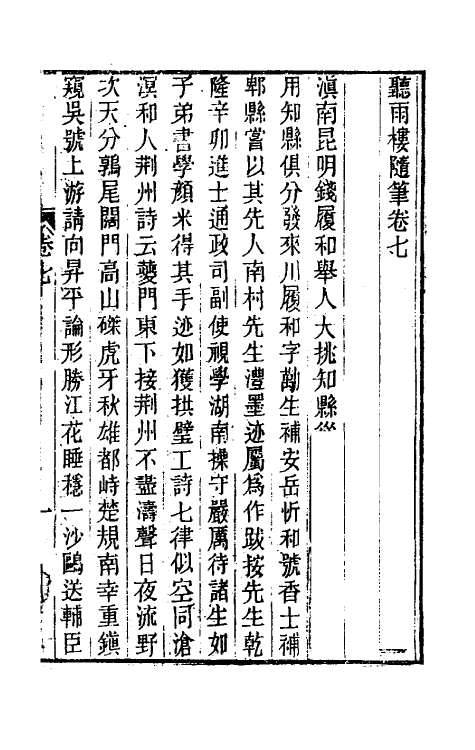 聽雨樓隨筆卷七
滇南昆明錢履和舉人大挑知縣從
用知縣俱分發來川履和字勘生補安岳忻和號香士補
郫縣嘗以其先人南村先生澧墨迹屬爲作跋按先生乾
隆辛卯進士通政司副使視學湖南操守嚴厲待諸生如
子弟書學顏米得其手迹如獲拱璧工詩七律似空同滄
溟和人荆州詩云夔門東下接荆州不盡濤聲日夜流野
次天分鶉尾闊門高山磔虎牙秋雄都峙楚規南幸重鎭
窺吳號上游請向昇平論形勝江花睡穩一沙鷗送輔臣
卷七
一